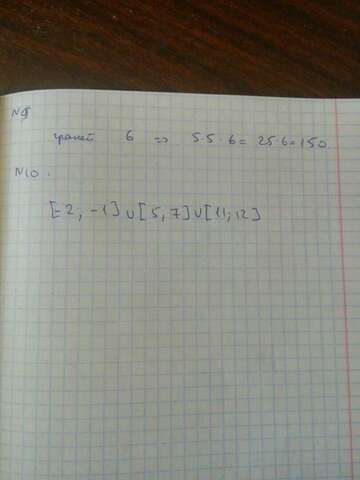 N9
граней 6 => 5·5·6 = 25·6=150
N10.
[-2; -1] ∪ [5, 7] ∪ [11; 12]